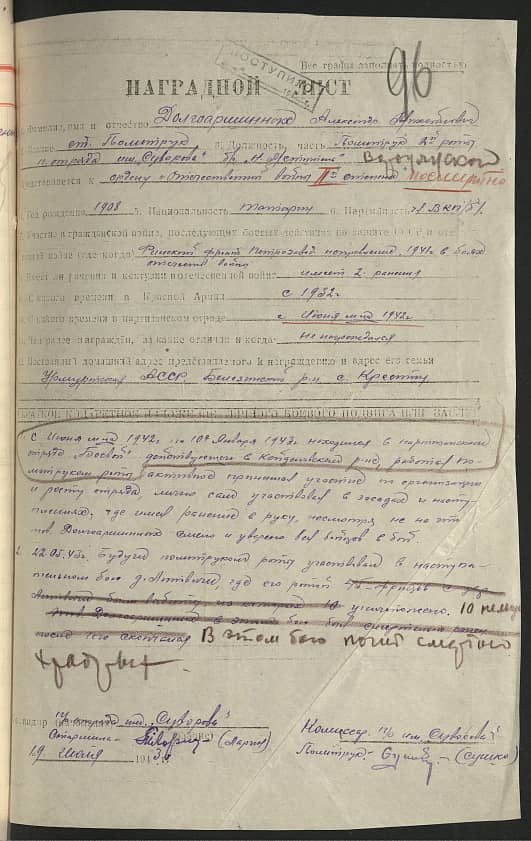 ПОСТУПИЛ
Все графы заполнять полностью
96
НАГРАДНОЙ ЛИСТ
1. Фамилия, имя и отчество Долгоаршинных Александр
ст. Политрук 3. Должность, часть Политрук 2й роты
п-отряда им. Суворова бр.
Представляется к ордену „Отечественной войны II й степени посмертно
4. Год рождения 1908 5. Национальность татарин 6. Партийность чл ВКП/б/.
7. Участие в гражданской войне, последующих боевых действиях по защите СССР и отече-
ственной войне (где когда) фронт направление, 1941 г. в боях
отечествен войны
8. Имеет ли ранения и контузии в отечественной войне имеет 2 ранения
9. С какого времени в Красной Армии с 1932 г.
10. С какого времени в партизанском отряде с Июня м-ца 1942 г.
11. Чем ранее награжден, за какие отличия и когда не награждался
12. Постоянный домашний адрес представляемого к награждению и адрес его семьи
Удмуртская АССР, р-н с.
КРАТКОЕ КОНКРЕТНОЕ ИЗЛОЖЕНИЕ ЛИЧНОГО БОЕВОГО ПОДВИГА ИЛИ ЗАСЛУГ
1. С Июня м-ца 1942 г. по 10е Января 1943 г. находился в партизанском
отряде „Боевой" действующем в р-не, работая по-
литруком роты, активно принимал участие по организации
и росту отряда, лично сам участвовал в засадах и насту-
плениях, где имел ранение в руку, несмотря не на эти
тов. Долгоаршинных смело и уверено вел бойцов в бой.
2. 22.05.43 г. Будучи политруком роты участвовал в наступа-
тельном бою д. где его ротой
уничтожено. 10 немцев
В этом бою погиб смертью
храбрых.
Командир п/отряда им. „Суворова"
Старшина
19 Июля 1943 г.
Комиссар п/о им. „Суворова"
Политрук - (Сушко)